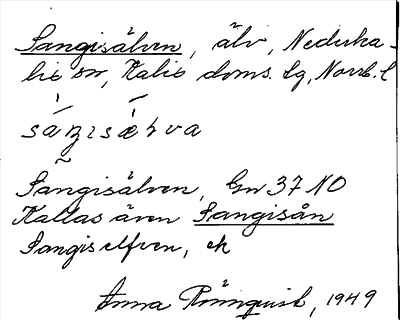 Sangisälven, älv, Nederka-
lix sn, Kalix doms. lg, Norrb. l
saŋɪsæ̀ɿva
Sangisälven, Gn 37 NO
Kallas även Sangisån
Sangis elfven, ek
Anna Rönnquist, 1949